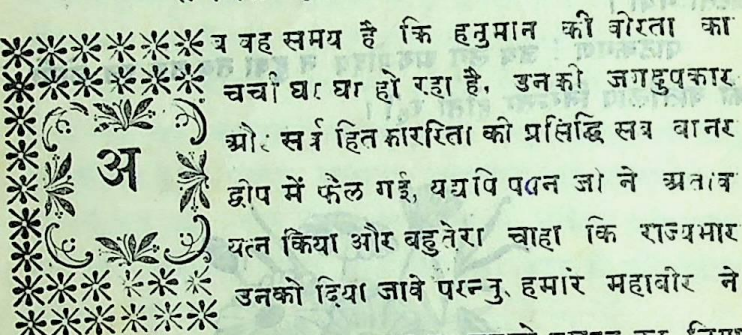 अब वह समय है कि हनुमान की वीरता का
चर्चा घर घर हो रहा है, उनकी जगदुपकार
और सर्व हितकाररिता की प्रसिद्धि सब वानर
द्वीप में फैल गई, यद्यपि पवन जी ने अतीव
यत्न किया और बहुतेरा चाहा कि राज्यभार
उनको दिया जावे परन्तु, हमारे महावीर ने